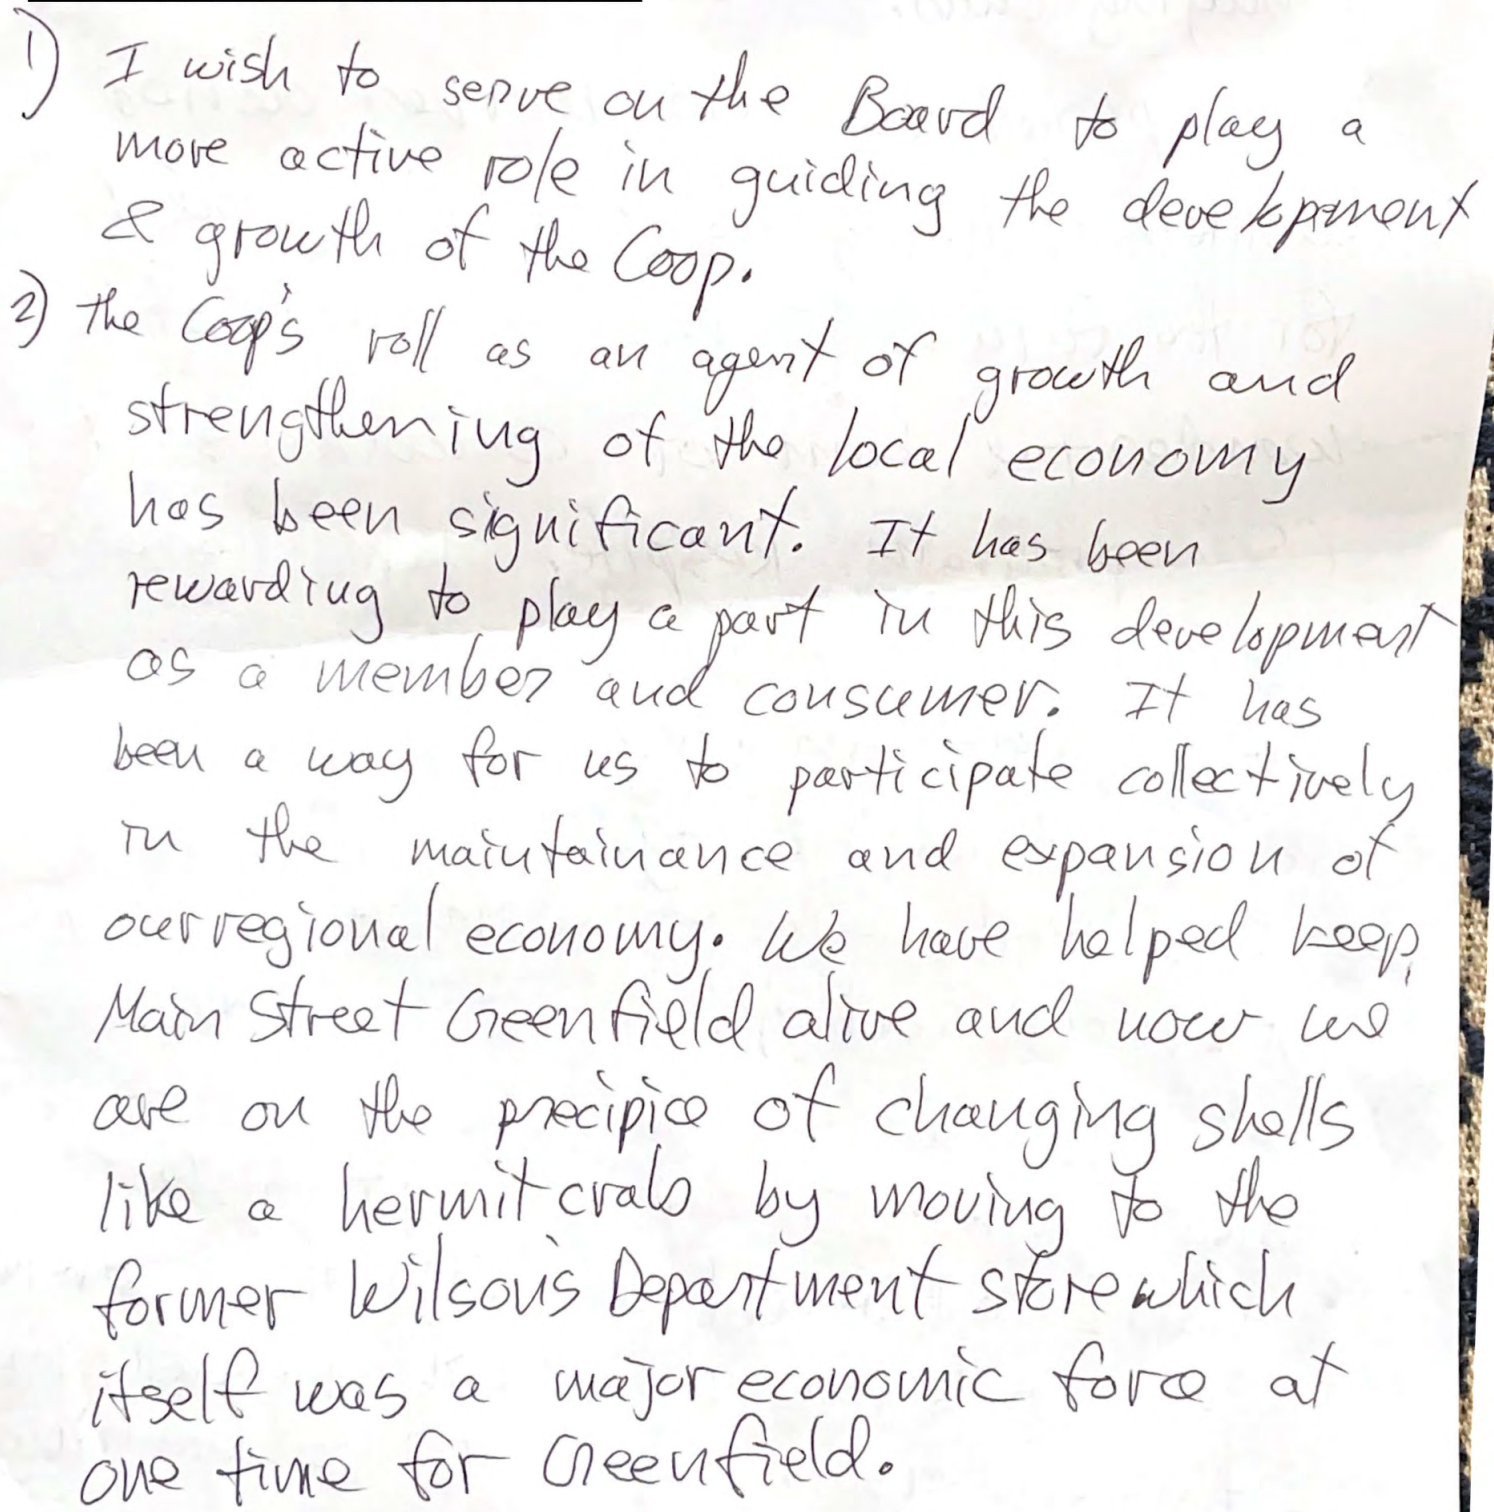 1) I wish to serve on the Board to play a
more active role in guiding the development
& growth of the Coop.
2) the Coop's roll as an agent of growth and
strengthening of the local economy
has been significant. It has been
rewarding to play a part in this development
as a member and consumer. It has
been a way for us to participate collectively
in the maintainance and expansion of
our regional economy. We have helped keep
Main Street Greenfield alive and now we
are on the precipice of changing shells
like a hermit crab by moving to the
former Wilson's Department store which
itself was a major economic force at
one time for Greenfield.